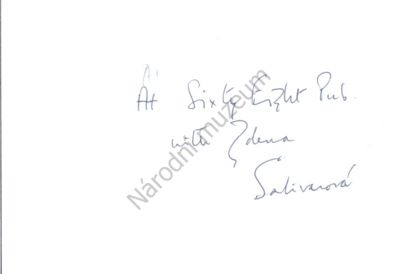 At Sixty Eight Pub.
with Zdena
Salivarová
Národní muzeum